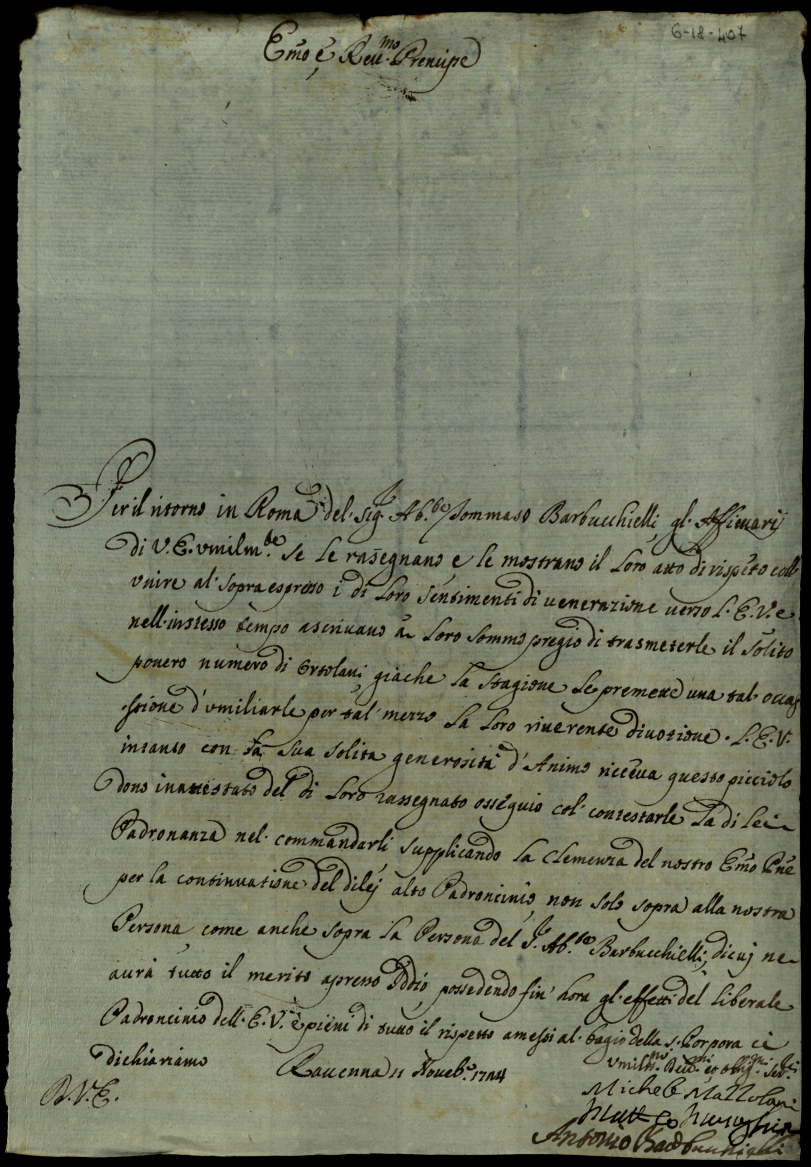 6-18-407
Emo è Reu.mo Prencipe
Per il ritorno in Roma del Sig.r Ab.te Tommaso Barbucchielli gl' Affittuarij
di V. E. vmilm.te se le rasegnano e le mostrano il Loro atto di rispeto coll'
vnire al sopra espresso i di Loro sentimenti di venerazione verso L. E. V. e
nell'instesso tempo ascrivano a Loro sommo pregio di trasmeterle il solito
povero numero di Ortolani giache la stagione le premette una tal' occas
sione d'vmiliarle per tal' mezzo la loro riverente divotione. L. E. V.
intanto con la sua solita generosità d'Animo riceva questo picciolo
dono in attestato del di Loro rassegnato osséquio col' contestarle la di lei
Padronanza nel commandarli supplicando la Clemenza del nostro Emo Pñe
per la continuatione del di lej alto Padroncinio non solo sopra alla nostra
Persona come anche sopra la Persona del S.r Ab.te Barbucchielli, di cuj ne
aurà tutto il merito apresso Iddio, possedendo fin' hora gl' effetti del liberale
Padroncinio dell' E. V. e pieni di tutto il rispetto amessi al bagio della s. Porpora ci
dichiariamo Ravenna 11 Noueb.e 1724
D. V. E.
Vmil.mi Deu.mi et obl.mi Ser.ri
Michele Mazzolani
Antonio